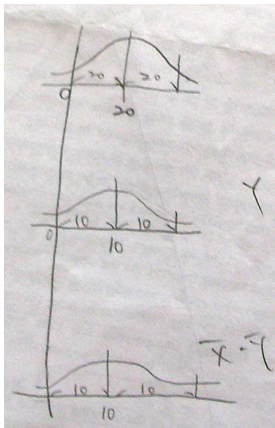 20 20
0
20
Y
10 10
0
10
X̄ - Ȳ
10 10
10